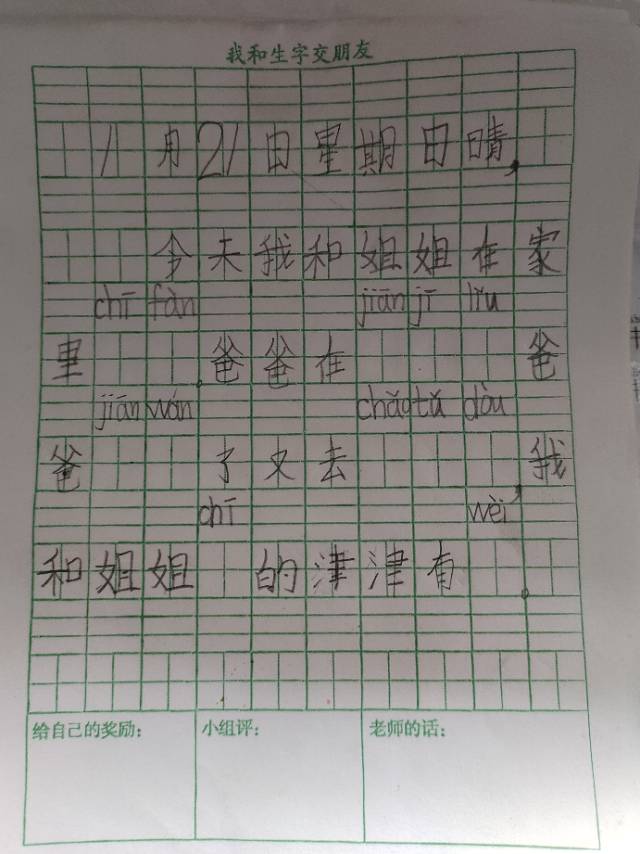 我和生字交朋友
1月21日星期日晴,
今天我和姐姐在家
chī fàn jiān jī liu
里。爸爸在爸
jiān wán chǎo tǔ dòu
爸了又去,我
chī wèi
和姐姐的津津有。
给自己的奖励: 小组评: 老师的话: